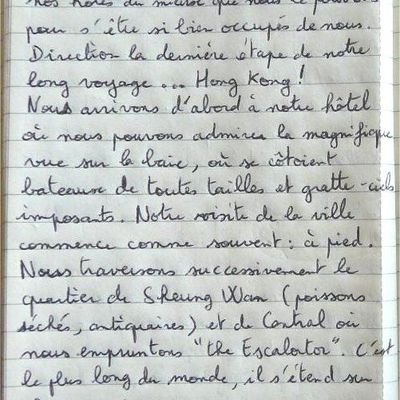 nos hôtes du mieux que nous le pouvons
pour s'être si bien occupés de nous.
Direction la dernière étape de notre
long voyage ... Hong Kong !
Nous arrivons d'abord à notre hôtel
où nous pouvons admirer la magnifique
vue sur la baie, où se côtoient
bateaux de toutes tailles et gratte-ciels
imposants. Notre visite de la ville
commence comme souvent : à pied.
Nous traversons successivement le
quartier de Sheung Wan (poissons
séchés, antiquaires) et de Central où
nous empruntons "the Escalator". C'est
le plus long du monde, il s'étend sur